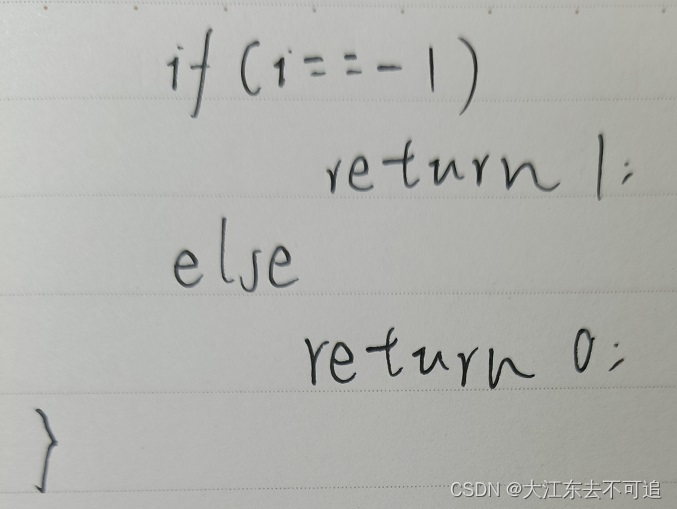 if (i==-1)
return 1;
else
return 0;
}
CSDN @大江东去不可追